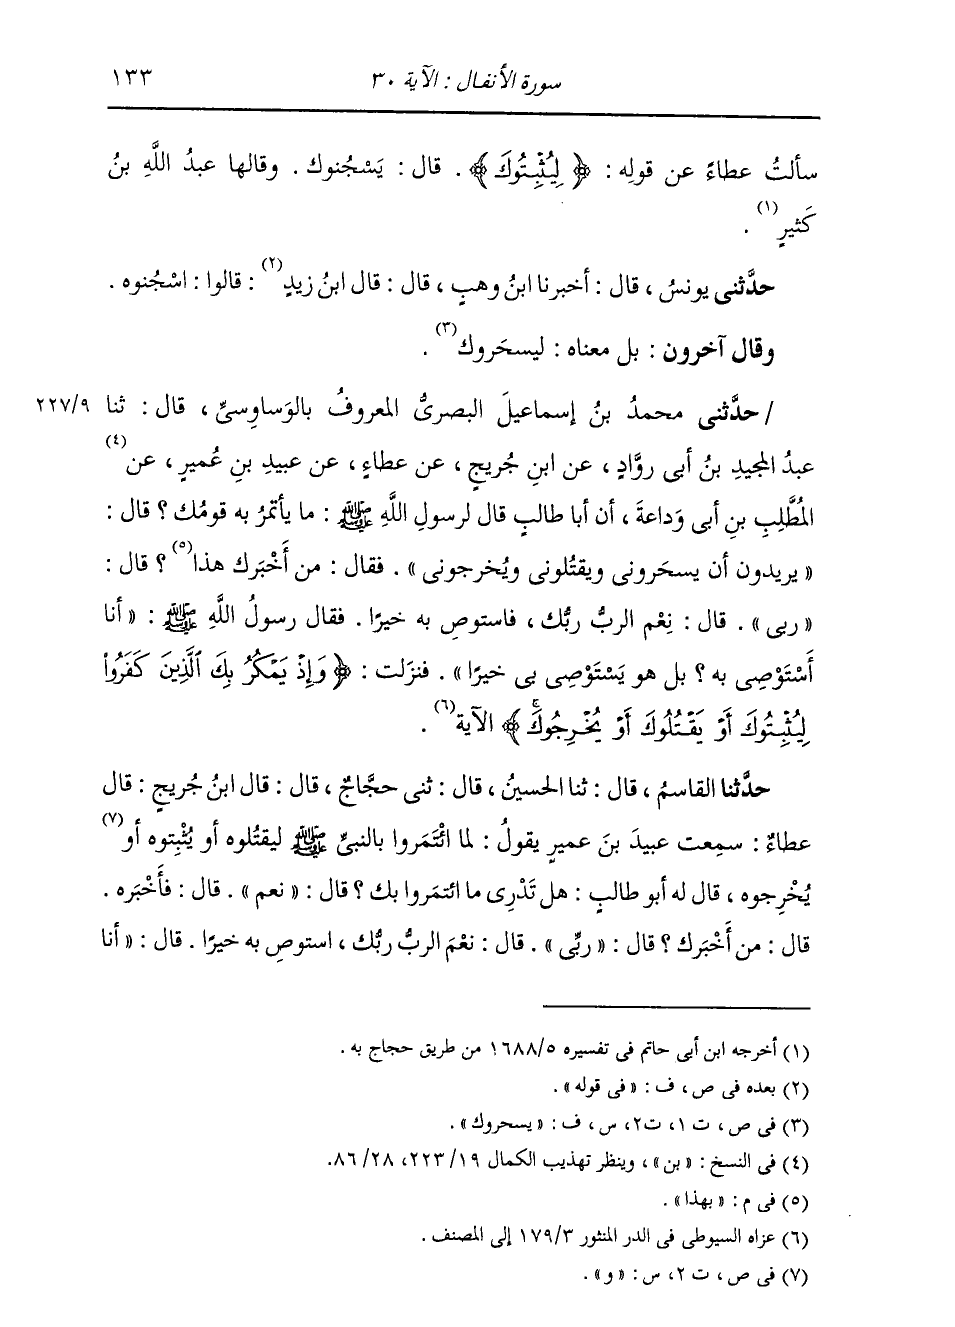 سورة الأنفال : الآية ٣٠ ١٣٣
سألتُ عطاءً عن قولِه : ﴿ لِيُثْبِتُوكَ ﴾ . قال : يَسْجُنوك . وقالها عبدُ اللَّهِ بنُ
كَثيرٍ(١) .
حدَّثنى يونسُ ، قال : أخبرنا ابنُ وهبٍ ، قال : قال ابنُ زيدٍ(٢) : قالوا : اسْجُنوه .
وقال آخرون : بل معناه : ليسحَروك(٣) .
/ حدَّثنى محمدُ بنُ إسماعيلَ البصرىُّ المعروفُ بالوَساوِسىِّ ، قال : ثنا ٢٢٧/٩
عبدُ المجيدِ بنُ أبى روَّادٍ ، عن ابنِ جُريجٍ ، عن عطاءٍ ، عن عبيدِ بنِ عُميرٍ ، عن(٤)
المُطَّلِبِ بنِ أبى وَداعةَ ، أن أبا طالبٍ قال لرسولِ اللَّهِ ﷺ : ما يأتمرُ به قومُك ؟ قال :
« يريدون أن يسحَرونى ويقتُلونى ويُخرجونى » . فقال : من أَخْبَرك هذا(٥) ؟ قال :
« ربى » . قال : نِعْم الربُّ ربُّك ، فاستوصِ به خيرًا . فقال رسولُ اللَّهِ ﷺ : « أنا
أَسْتَوْصِى به ؟ بل هو يَسْتَوْصِى بى خيرًا » . فنزَلت : ﴿ وَإِذْ يَمْكُرُ بِكَ ٱلَّذِينَ كَفَرُوا۟
لِيُثْبِتُوكَ أَوْ يَقْتُلُوكَ أَوْ يُخْرِجُوكَۚ ﴾ الآية(٦) .
حدَّثنا القاسمُ ، قال : ثنا الحسينُ ، قال : ثنى حجَّاجٌ ، قال : قال ابنُ جُريجٍ : قال
عطاءٌ : سمِعت عبيدَ بنَ عميرٍ يقولُ : لما ائْتَمَروا بالنبىِّ ﷺ ليقتُلوه أو يُثْبِتوه أو(٧)
يُخْرِجوه ، قال له أبو طالبٍ : هل تَدْرِى ما ائتمَروا بك ؟ قال : « نعم » . قال : فأَخْبَره .
قال : من أَخْبَرك ؟ قال : « ربِّى » . قال : نعْمَ الربُّ ربُّك ، استوصِ به خيرًا . قال : « أنا
(١) أخرجه ابن أبى حاتم فى تفسيره ١٦٨٨/٥ من طريق حجاج به .
(٢) بعده فى ص ، ف : « فى قوله » .
(٣) فى ص ، ت ١ ، ت٢ ، س ، ف : « يسحروك » .
(٤) فى النسخ : « بن » ، وينظر تهذيب الكمال ٢٢٣/١٩ ، ٨٦/٢٨ .
(٥) فى م : « بهذا » .
(٦) عزاه السيوطى فى الدر المنثور ١٧٩/٣ إلى المصنف .
(٧) فى ص ، ت ٢ ، س : « و » .